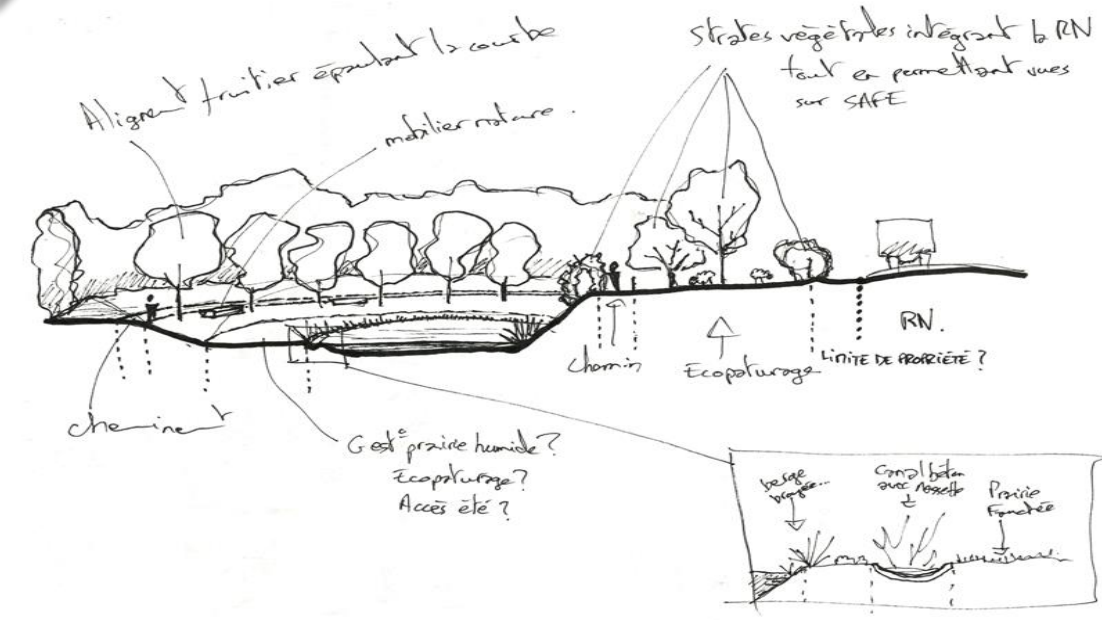 Alignemt fruitier épaulant la courbe
mobilier nature.
Strates végétales intégrant la RN
tout en permettant vues
sur SAFE
Chemin
Ecopaturage
LIMITE DE PROPRIÉTÉ ?
RN.
cheminemt
Gest° prairie humide ?
Ecopaturage ?
Accès été ?
berge
Canal béton
avec
Prairie
Fauchée